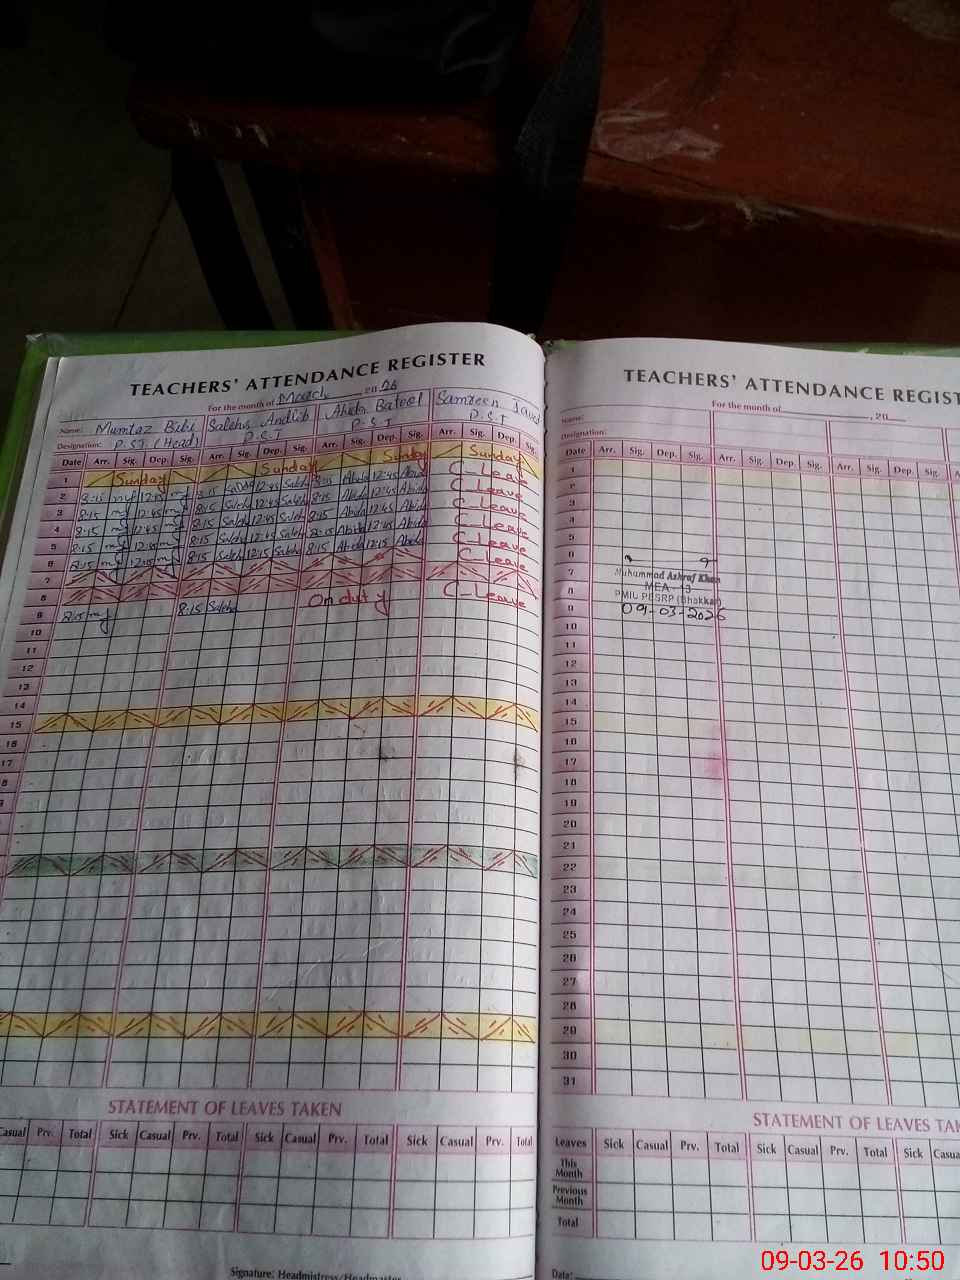 TEACHERS' ATTENDANCE REGISTER
For the month of March 2026
Name: Mumtaz Bibi Saleha Andlib Abida Batool Samreen Javed
Designation: P.S.T (Head) P.S.T P.S.T P.S.T
Date Arr. Sig. Dep. Sig. Arr. Sig. Dep. Sig. Arr. Sig. Dep. Sig. Arr. Sig. Dep. Sig.
1 Sunday Sunday Sunday Sunday
2 8:15 12:45 8:15 Saleha 12:45 Saleha 8:15 Abida 12:45 Abida C-Leave
3 8:15 12:45 8:15 Saleha 12:45 Saleha 8:15 Abida 12:45 Abida C-Leave
4 8:15 12:45 8:15 Saleha 12:45 Saleha 8:15 Abida 12:45 Abida C-Leave
5 8:15 12:45 8:15 Saleha 12:45 Saleha 8:15 Abida 12:45 Abida C-Leave
6 8:15 12:15 8:15 Saleha 12:15 Saleha 8:15 Abida 12:15 Abida C-Leave
7
8
9 8:15 8:15 Saleha On duty C-Leave
10
11
12
13
14
15
16
17
STATEMENT OF LEAVES TAKEN
Casual Prv. Total Sick Casual Prv. Total Sick Casual Prv. Total Sick Casual Prv. Total
Signature: Headmistress/Headmaster
TEACHERS' ATTENDANCE REGIST
For the month of , 20
Name:
Designation:
Date Arr. Sig. Dep. Sig. Arr. Sig. Dep. Sig. Arr. Sig. Dep. Sig. Arr.
1
2
3
4
5
6
7
Muhammad Ashraf Khan
8
MEA - 13
PMIU PESRP (Bhakkar)
9
09-03-2026
10
11
12
13
14
15
16
17
18
19
20
21
22
23
24
25
26
27
28
29
30
31
STATEMENT OF LEAVES TAK
Leaves Sick Casual Prv. Total Sick Casual Prv. Total Sick Casua
This Month
Previous Month
Total
Date:
09-03-26 10:50